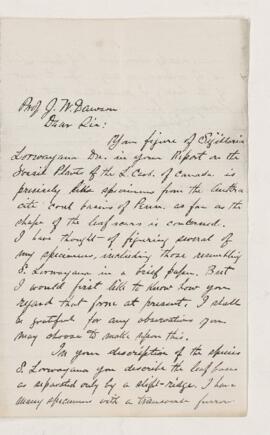 Prof J. W. Dawson
Dear Sir:
Your figure of Sigillaria
Lorwayana Dn. in your Report on the
Fossil Plants of the L. Carb. of Canada is
precisely like specimens from the Anthra
cite coal basins of Penn. as far as the
shape of the leaf scars is concerned.
I have thought of figuring several of
my specimens, including those resembling
S. Lorwayana in a brief paper. But
I would first like to know how you
regard that form at present. I shall
be grateful for any observations you
may choose to make upon this.
In your description of the species
S. Lorwayana you describe the leaf bases
as separated only by a slight ridge. I have
many specimens with a transverse furrow